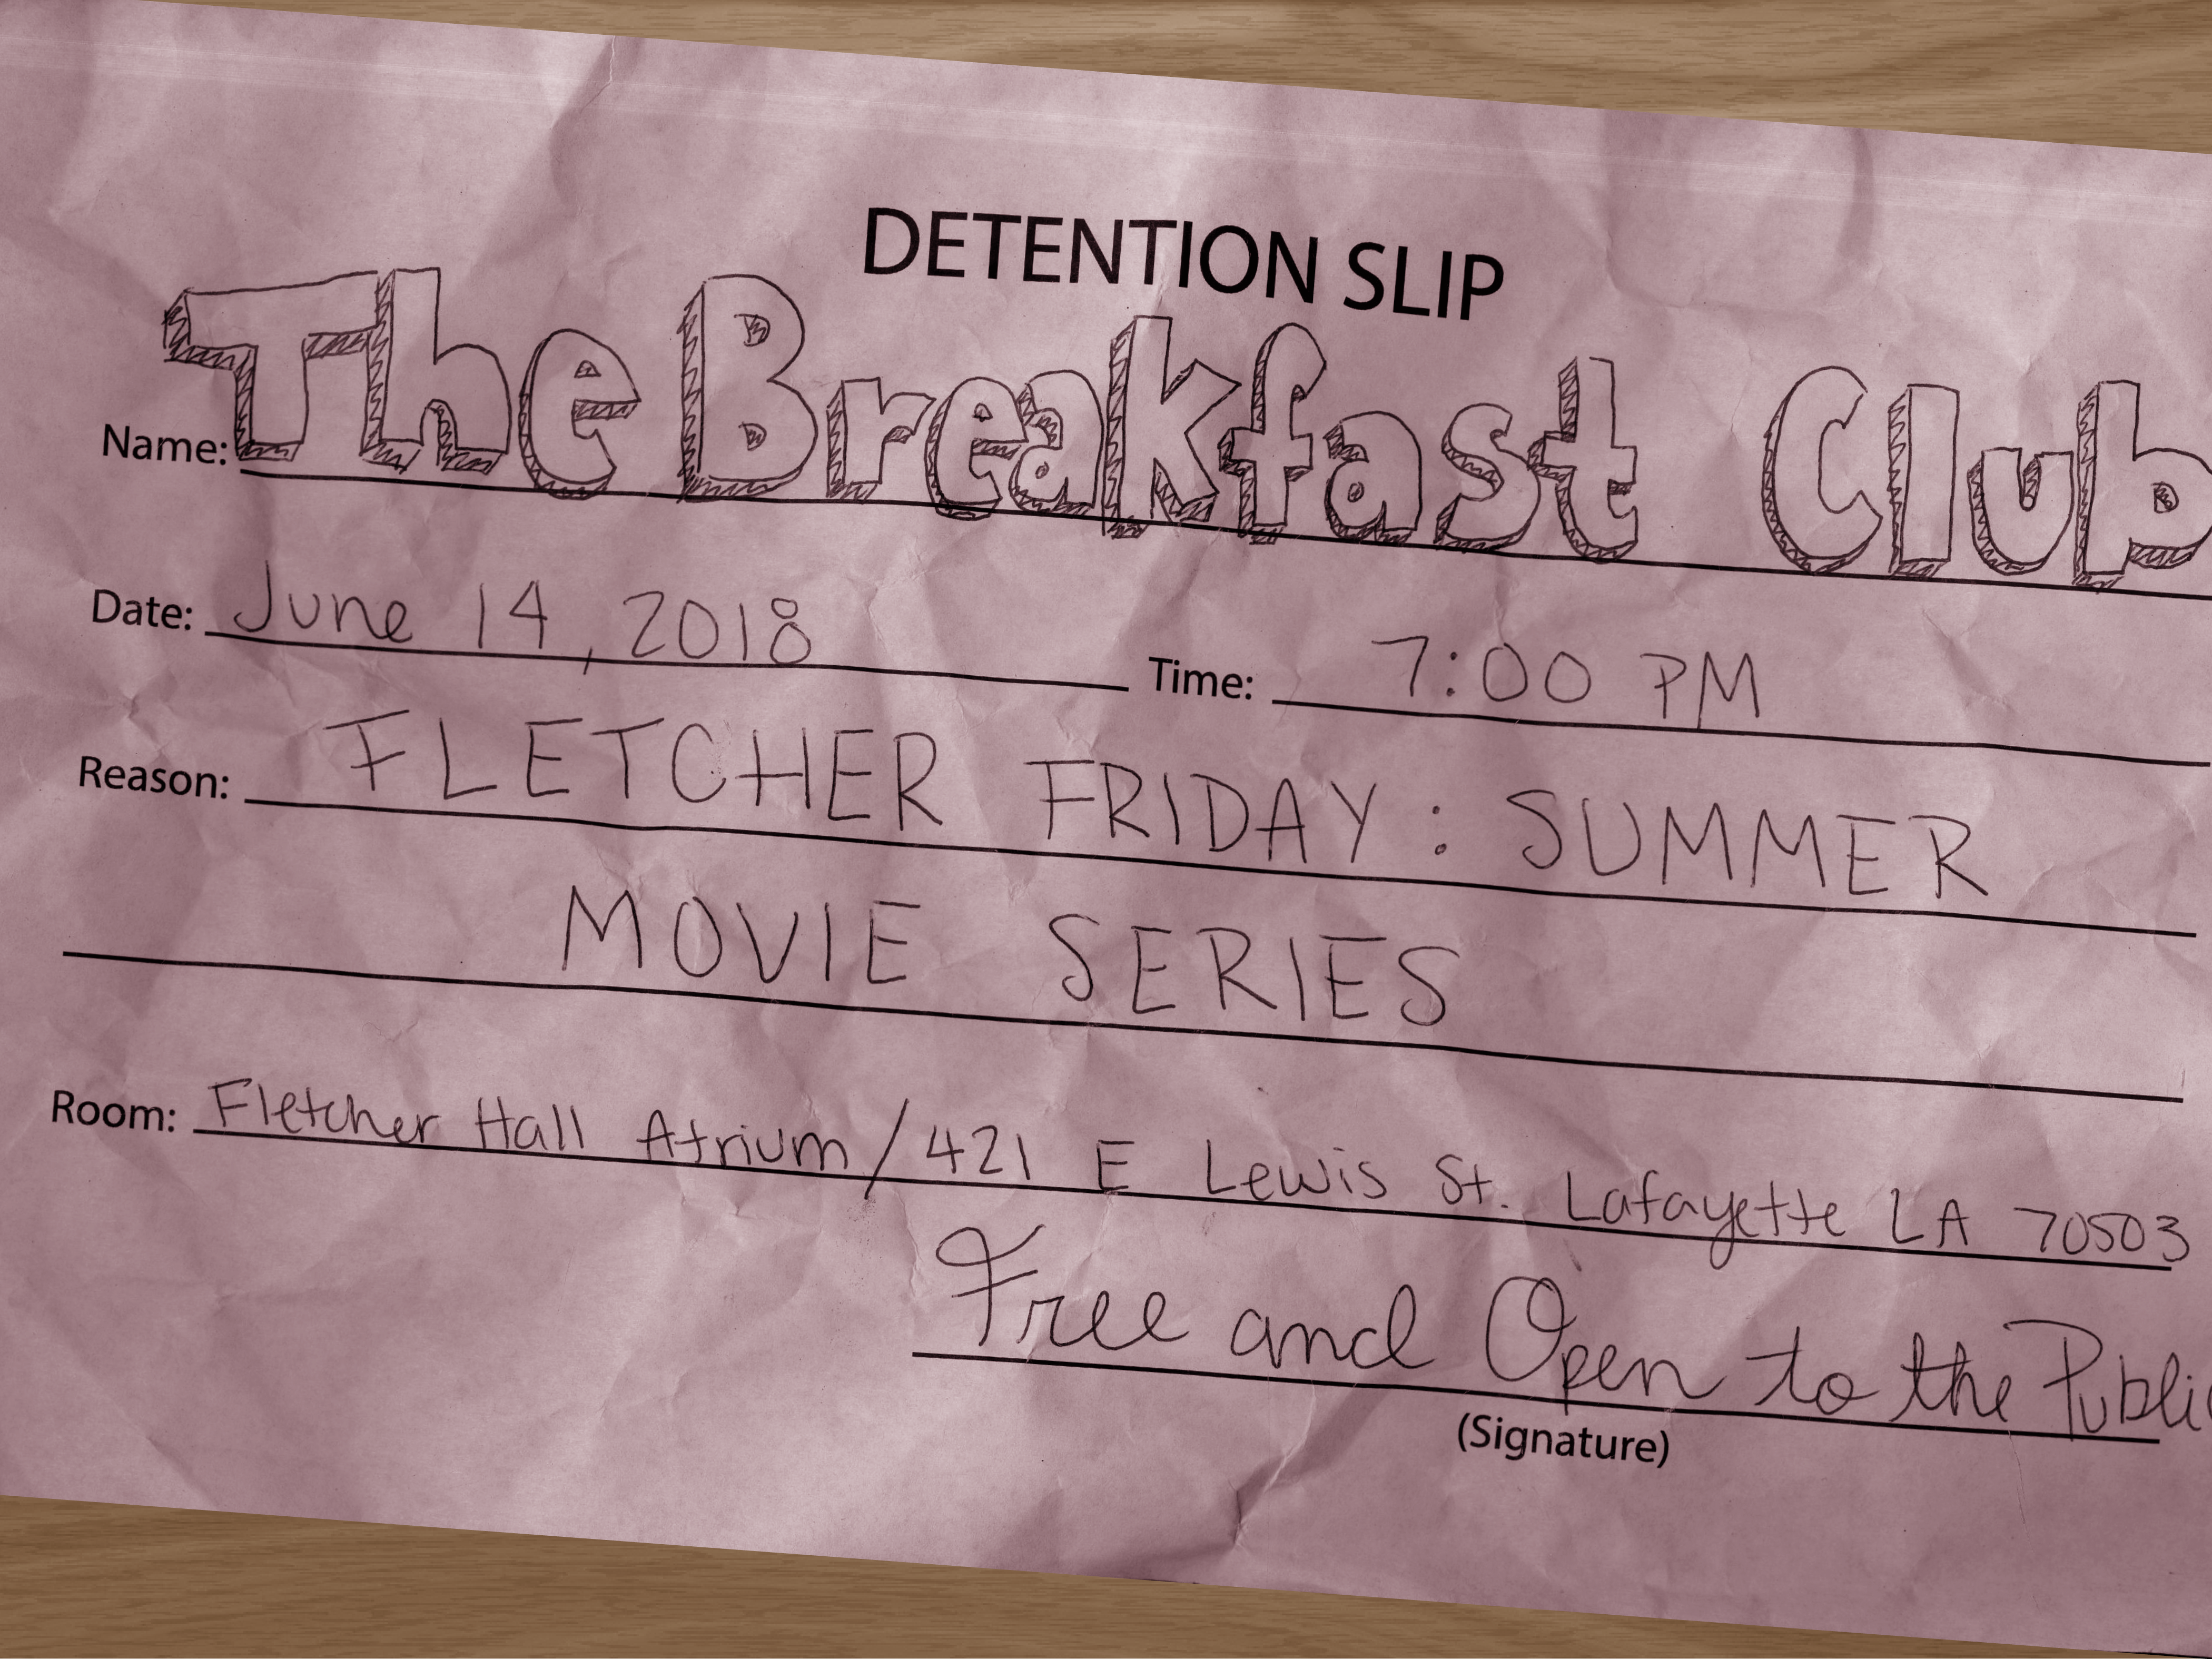 DETENTION SLIP
Name: The Breakfast Club
Date: June 14, 2018 Time: 7:00 PM
Reason: FLETCHER FRIDAY: SUMMER
MOVIE SERIES
Room: Fletcher Hall Atrium/421 E Lewis St. Lafayette LA 70503
Free and Open to the Public
(Signature)